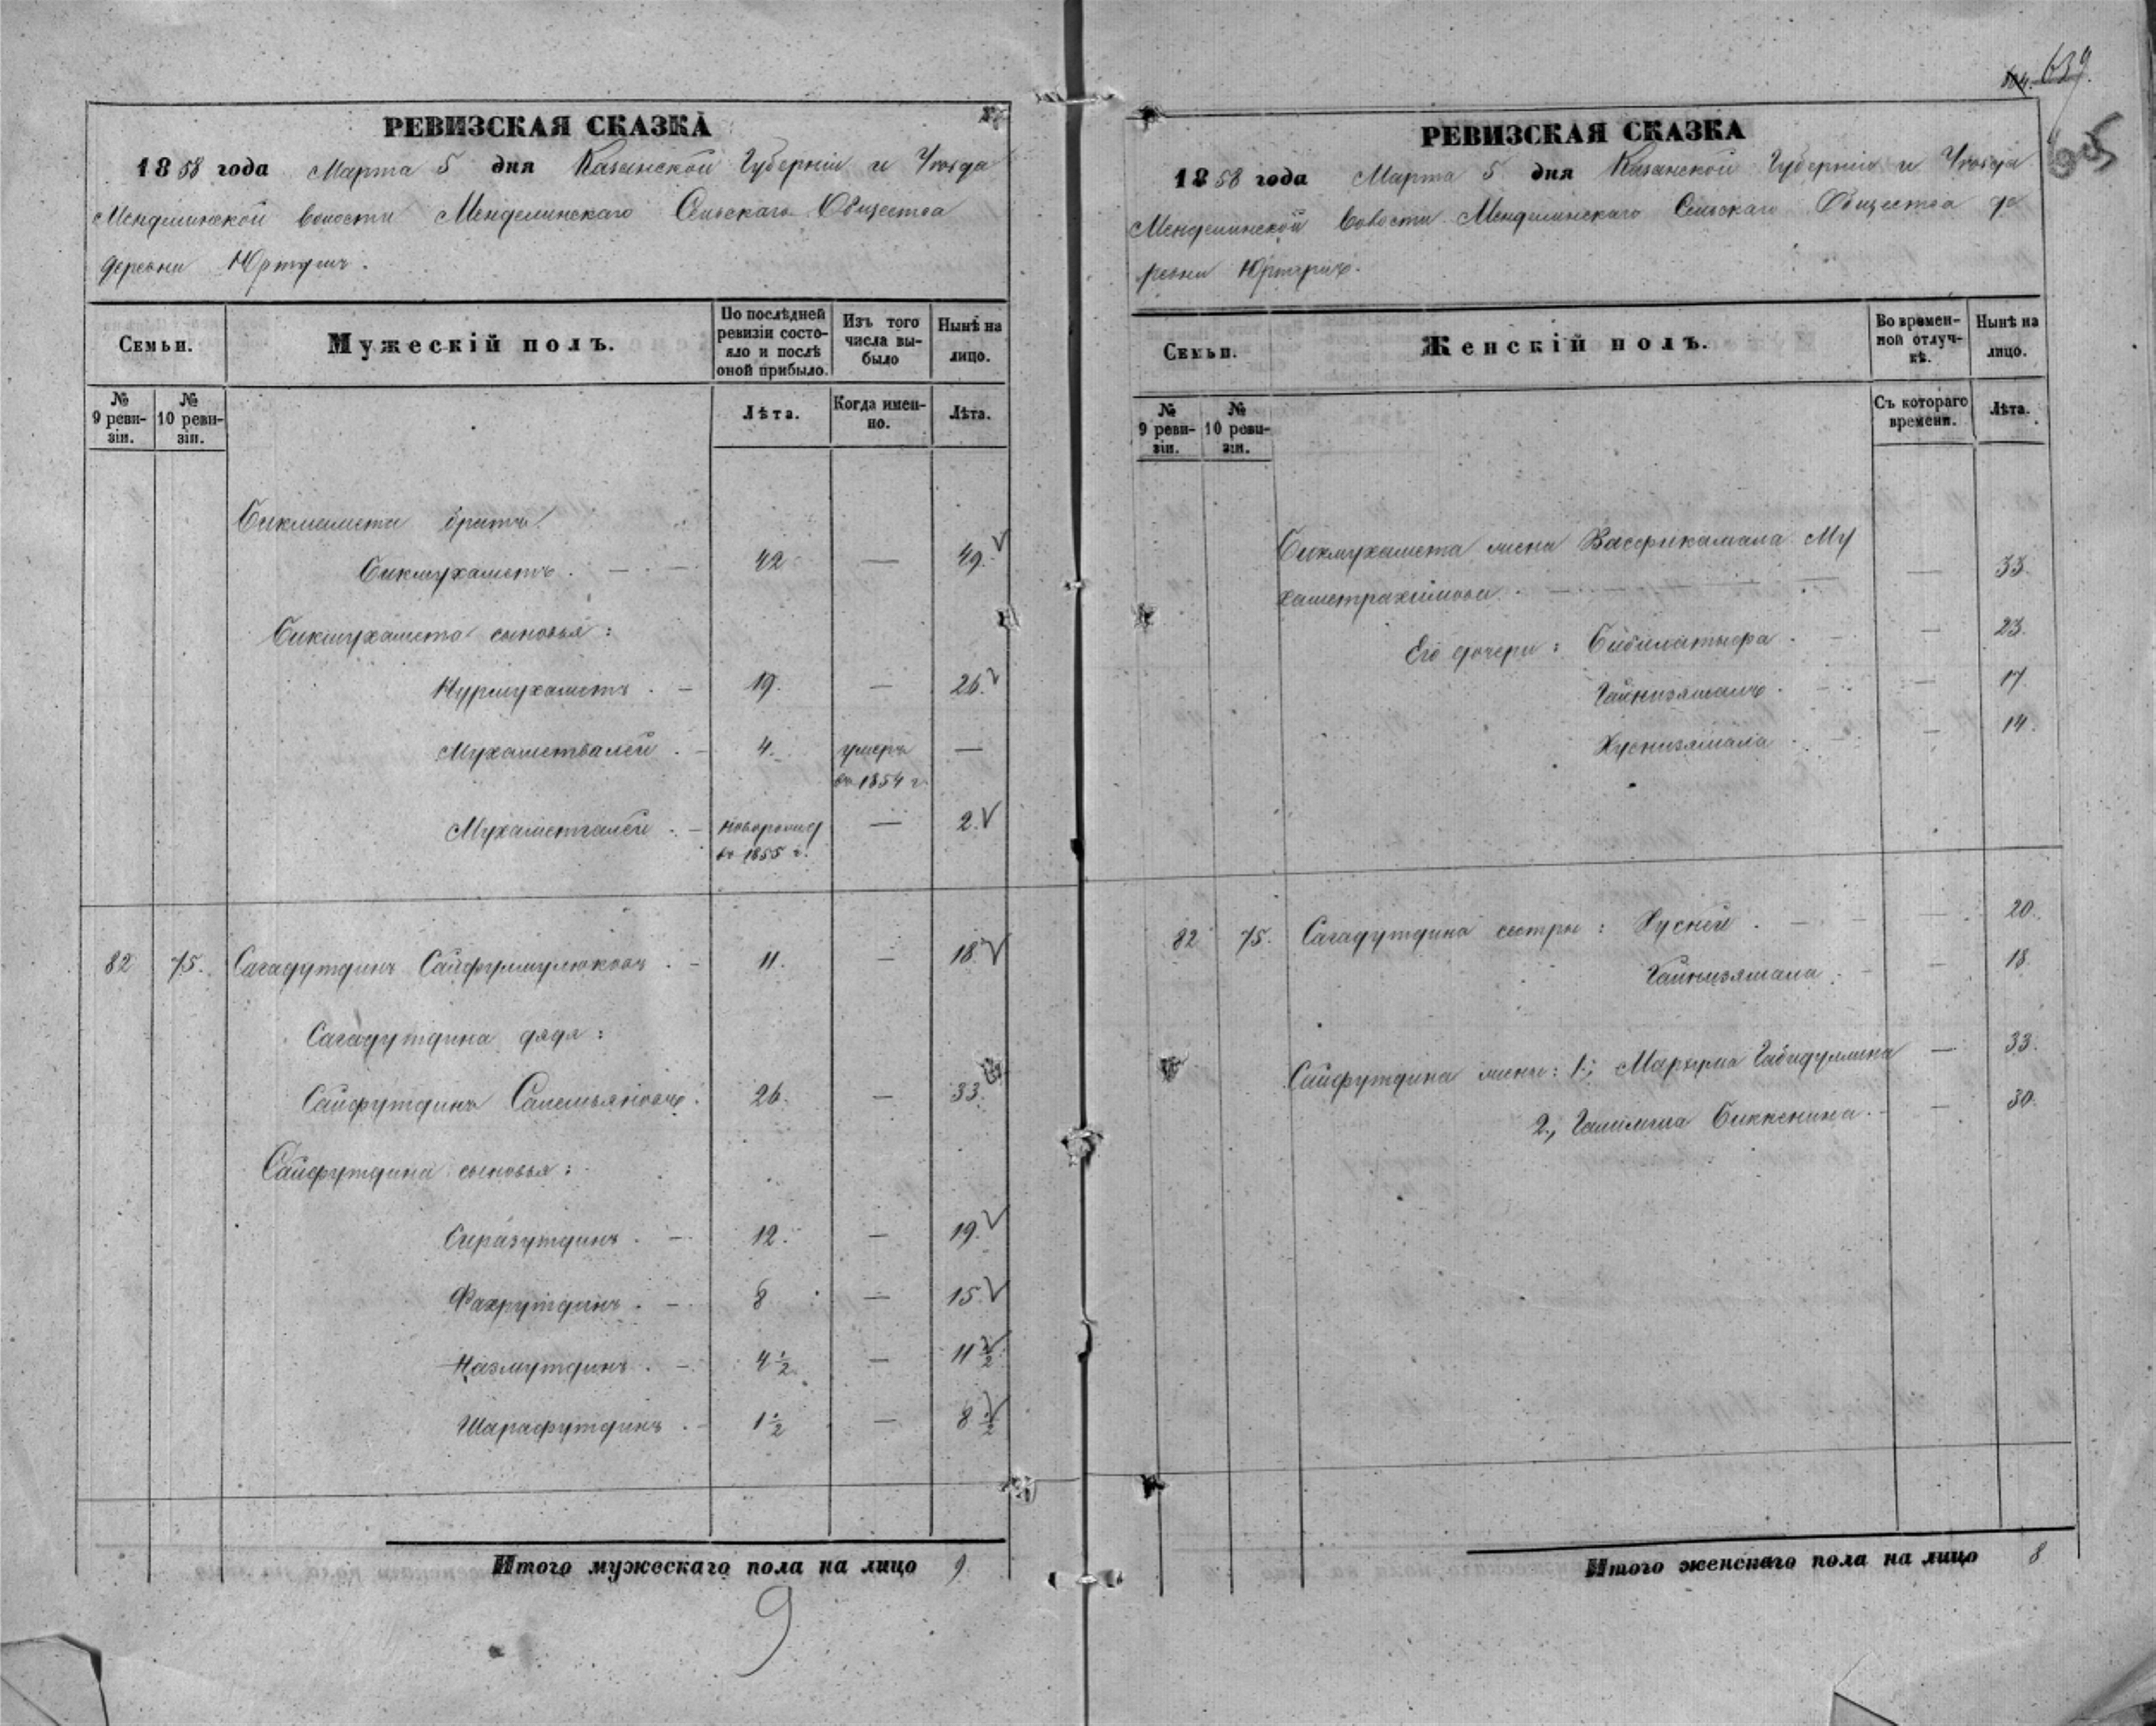 РЕВИЗСКАЯ СКАЗКА
1858 года Марта 5 дня Казанской Губерніи и Уѣзда
Менделинской волости Менделинскаго Сельскаго Общества
деревни
Семьи.
Мужескій полъ.
По послѣдней ревизіи состояло и послѣ оной прибыло.
Изъ того числа выбыло
Нынѣ на лицо.
№ 9 ревизіи.
№ 10 ревизіи.
Лѣта.
Когда именно.
Лѣта.
Бикмамета братъ
Бикмухаметъ . — 42 — 49.
Бикмухамета сыновья:
Нурмухаметъ . — 19. — 26.
Мухаметвалей . — 4. умеръ —
въ 1854 г.
Мухаметгалей . — новорожд — 2.
въ 1855 г.
82 75. Сагадутдинъ Сайфулмулюковъ . — 11. — 18.
Сагадутдина дядя:
Сайфутдинъ . 26. — 33.
Сайфутдина сыновья:
Сиразутдинъ . — 12. — 19.
Фахрутдинъ . — 8 — 15.
Назмутдинъ . — 4 1/2 — 11 1/2
Шарафутдинъ . — 1 1/2 — 8 1/2
Итого мужескаго пола на лицо 9
9
639.
65
РЕВИЗСКАЯ СКАЗКА
1858 года Марта 5 дня Казанской Губерніи и Уѣзда
Менделинской Волости Менделинскаго Сельскаго Общества де
ревни
Семьи.
Женскій полъ.
Во временной отлучкѣ.
Нынѣ на лицо.
№ 9 ревизіи.
№ 10 ревизіи.
Съ котораго времени.
Лѣта.
Бикмухамета жена Му
хаметрахимова . — — 33.
Его дочери: . — — 23.
Гайнизямалъ . — — 17.
Хуснизямала . — — 14.
82 75. Сагадутдина сестры: Хусней . — — 20.
Гайнизямала . — — 18.
Сайфутдина жены: 1, Габидуллина — 33.
2, Биккенина . — — 30.
Итого женскаго пола на лицо 8